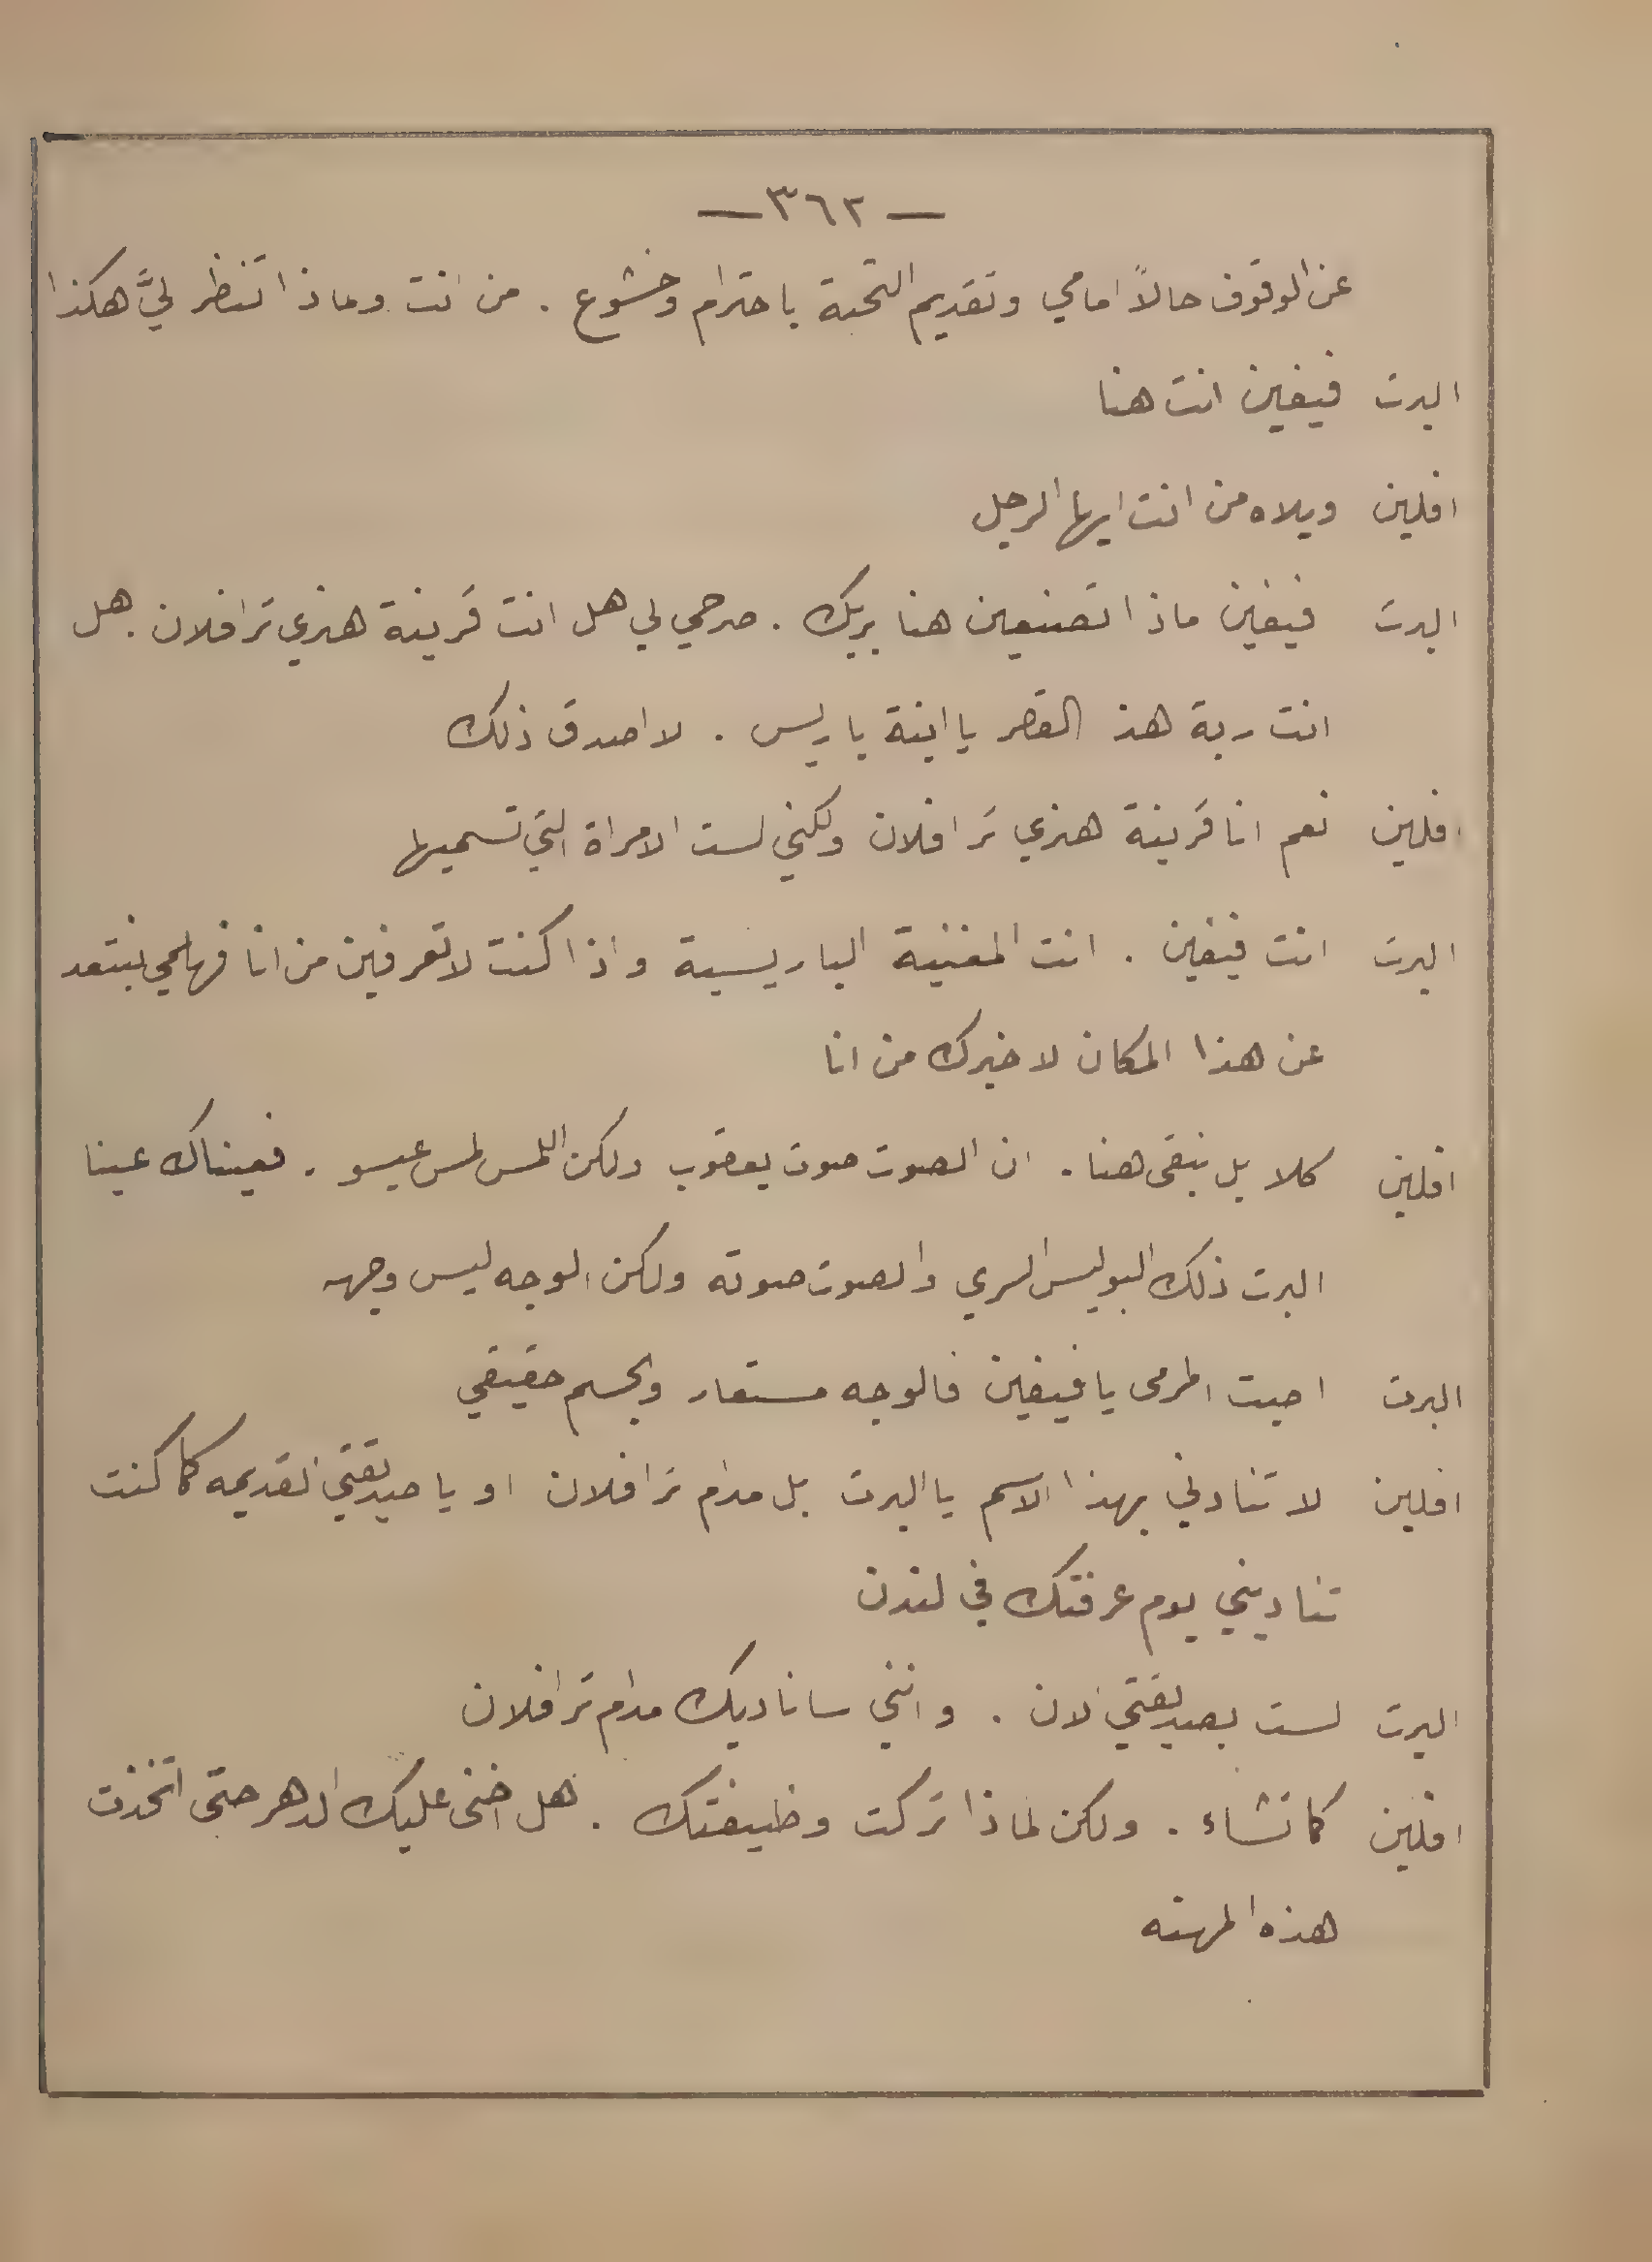 — ٣٦٢ —
عن الوقوف حالاً امامي وتقديم التحية باحترام وخشوع . من انت وماذا تنظر ليَّ هكذا
البرت فيفين انت هنا
افلين ويلاه من انت ايها الرجل
البرت فيفين ماذا تصنعين هنا بربك . صرحي لي هل انت قرينة هنري ترافلان . هل
انت ربة هذ القصر يا ابنة باريس . لا اصدق ذلك
افلين نعم انا قرينة هنري ترافلان ولكني لست الامراة التي تسميها
البرت انت فيفين . انت المغنية الباريسية واذا كنت لا تعرفين من انا فهلمي نبتعد
عن هذا المكان لاخبرك من انا
افلين كلا بل نبقى هنا . ان الصوت صوت يعقوب ولكن اللمس لمس عيسو . فعيناك عينا
البرت ذلك البوليس السري والصوت صوته ولكن الوجه ليس وجهه
البرت اصبت المرمى يا فيفين فالوجه مستعار والجسم حقيقي
افلين لا تنادني بهذا الاسم يا البرت بل مدام ترافلان او يا صديقتي القديمه كما كنت
تناديني يوم عرفتك في لندن
البرت لست بصديقتي الان . وانني ساناديك مدام ترافلان
افلين كما تشاء . ولكن لماذا تركت وظيفتك . هل اخنى عليك الدهر حتى اتخذت
هذه المهنه